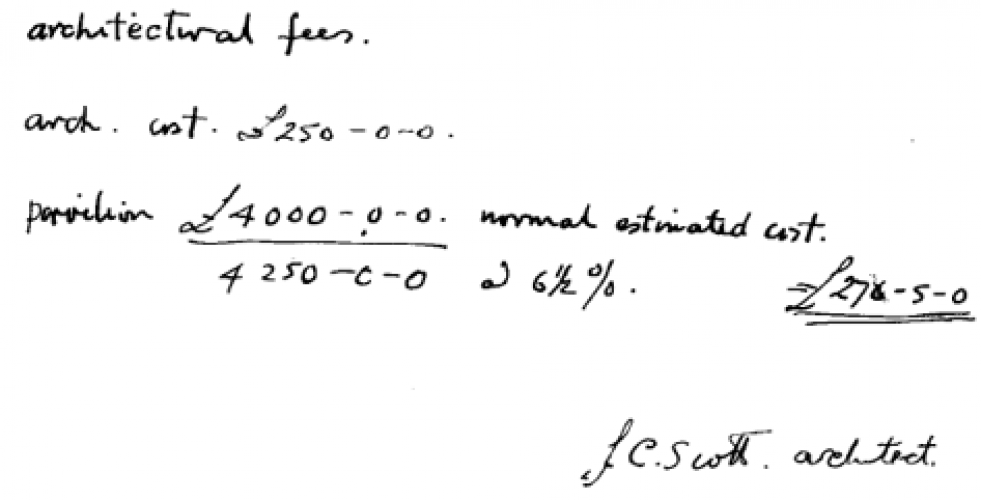 architectural fees.
arch. cost. £250-0-0.
pavilion £4000-0-0. normal estimated cost.
4250-0-0 @ 6½%. £276-5-0
J C. Scott. architect.